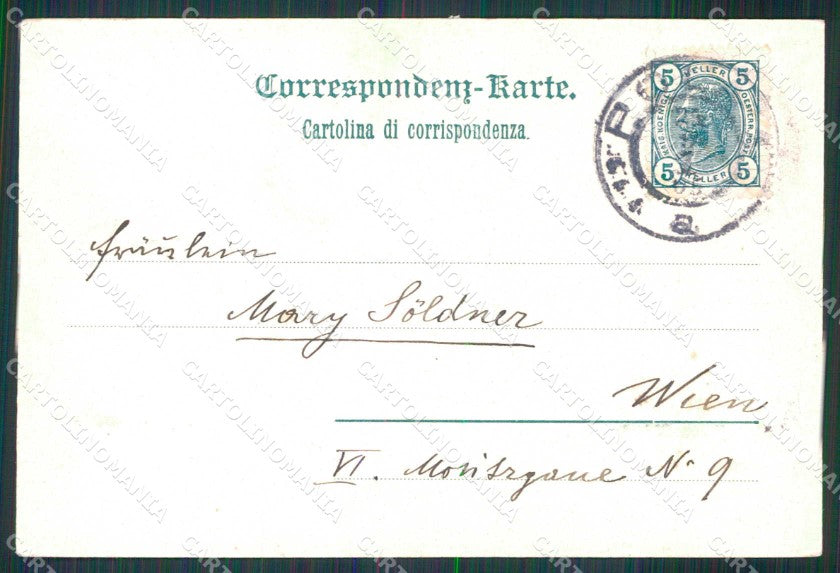 Correspondenz-Karte.
Cartolina di corrispondenza.
5 HELLER 5
KAIS. KOENIGL. OESTERR. POST
5 HELLER 5
PO
a
Fräulein
Mary Söldner
Wien
VI. N. 9
CARTOLINOMANIA